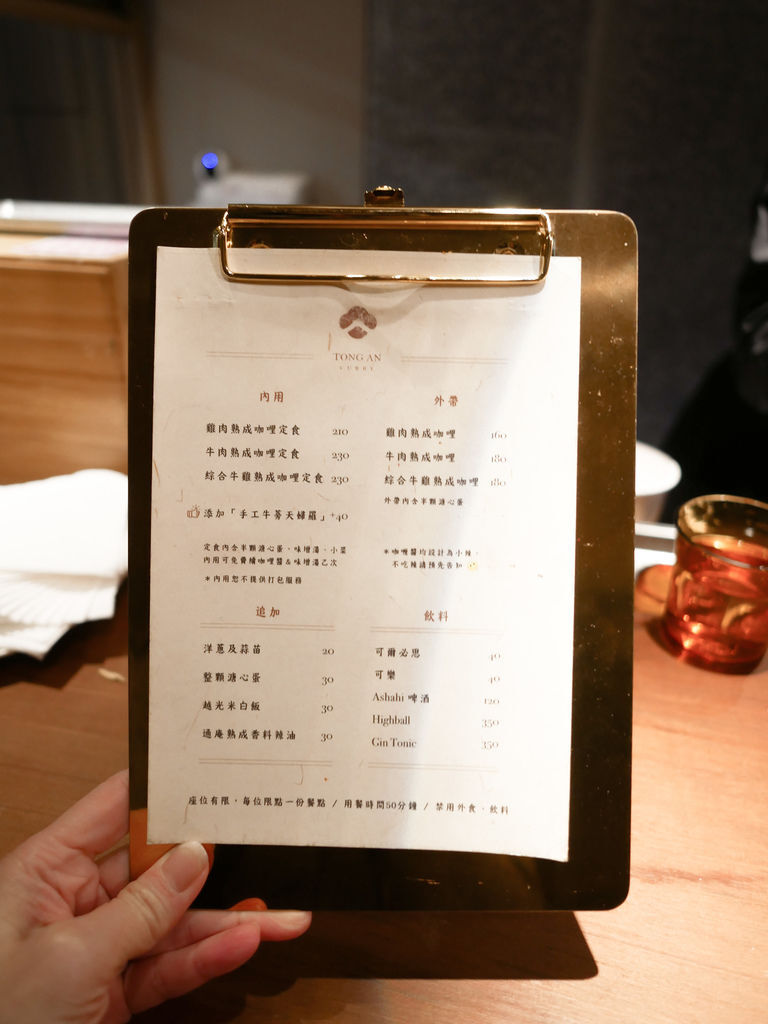 TONG AN
CURRY
內用
雞肉熟成咖哩定食 210
牛肉熟成咖哩定食 230
綜合牛雞熟成咖哩定食 230
添加「手工牛蒡天婦羅」+40
定食內含半顆溏心蛋、味增湯、小菜
內用可免費續咖哩醬&味增湯乙次
*內用恕不提供打包服務
外帶
雞肉熟成咖哩 160
牛肉熟成咖哩 180
綜合牛雞熟成咖哩 180
外帶內含半顆溏心蛋
*咖哩醬均設計為小辣,
不吃辣請預先告知
追加
洋蔥及蒜苗 20
整顆溏心蛋 30
越光米白飯 30
通庵熟成香料辣油 30
飲料
可爾必思 40
可樂 40
Ashahi 啤酒 120
Highball 350
Gin Tonic 350
座位有限,每位限點一份餐點 / 用餐時間50分鐘 / 禁用外食、飲料